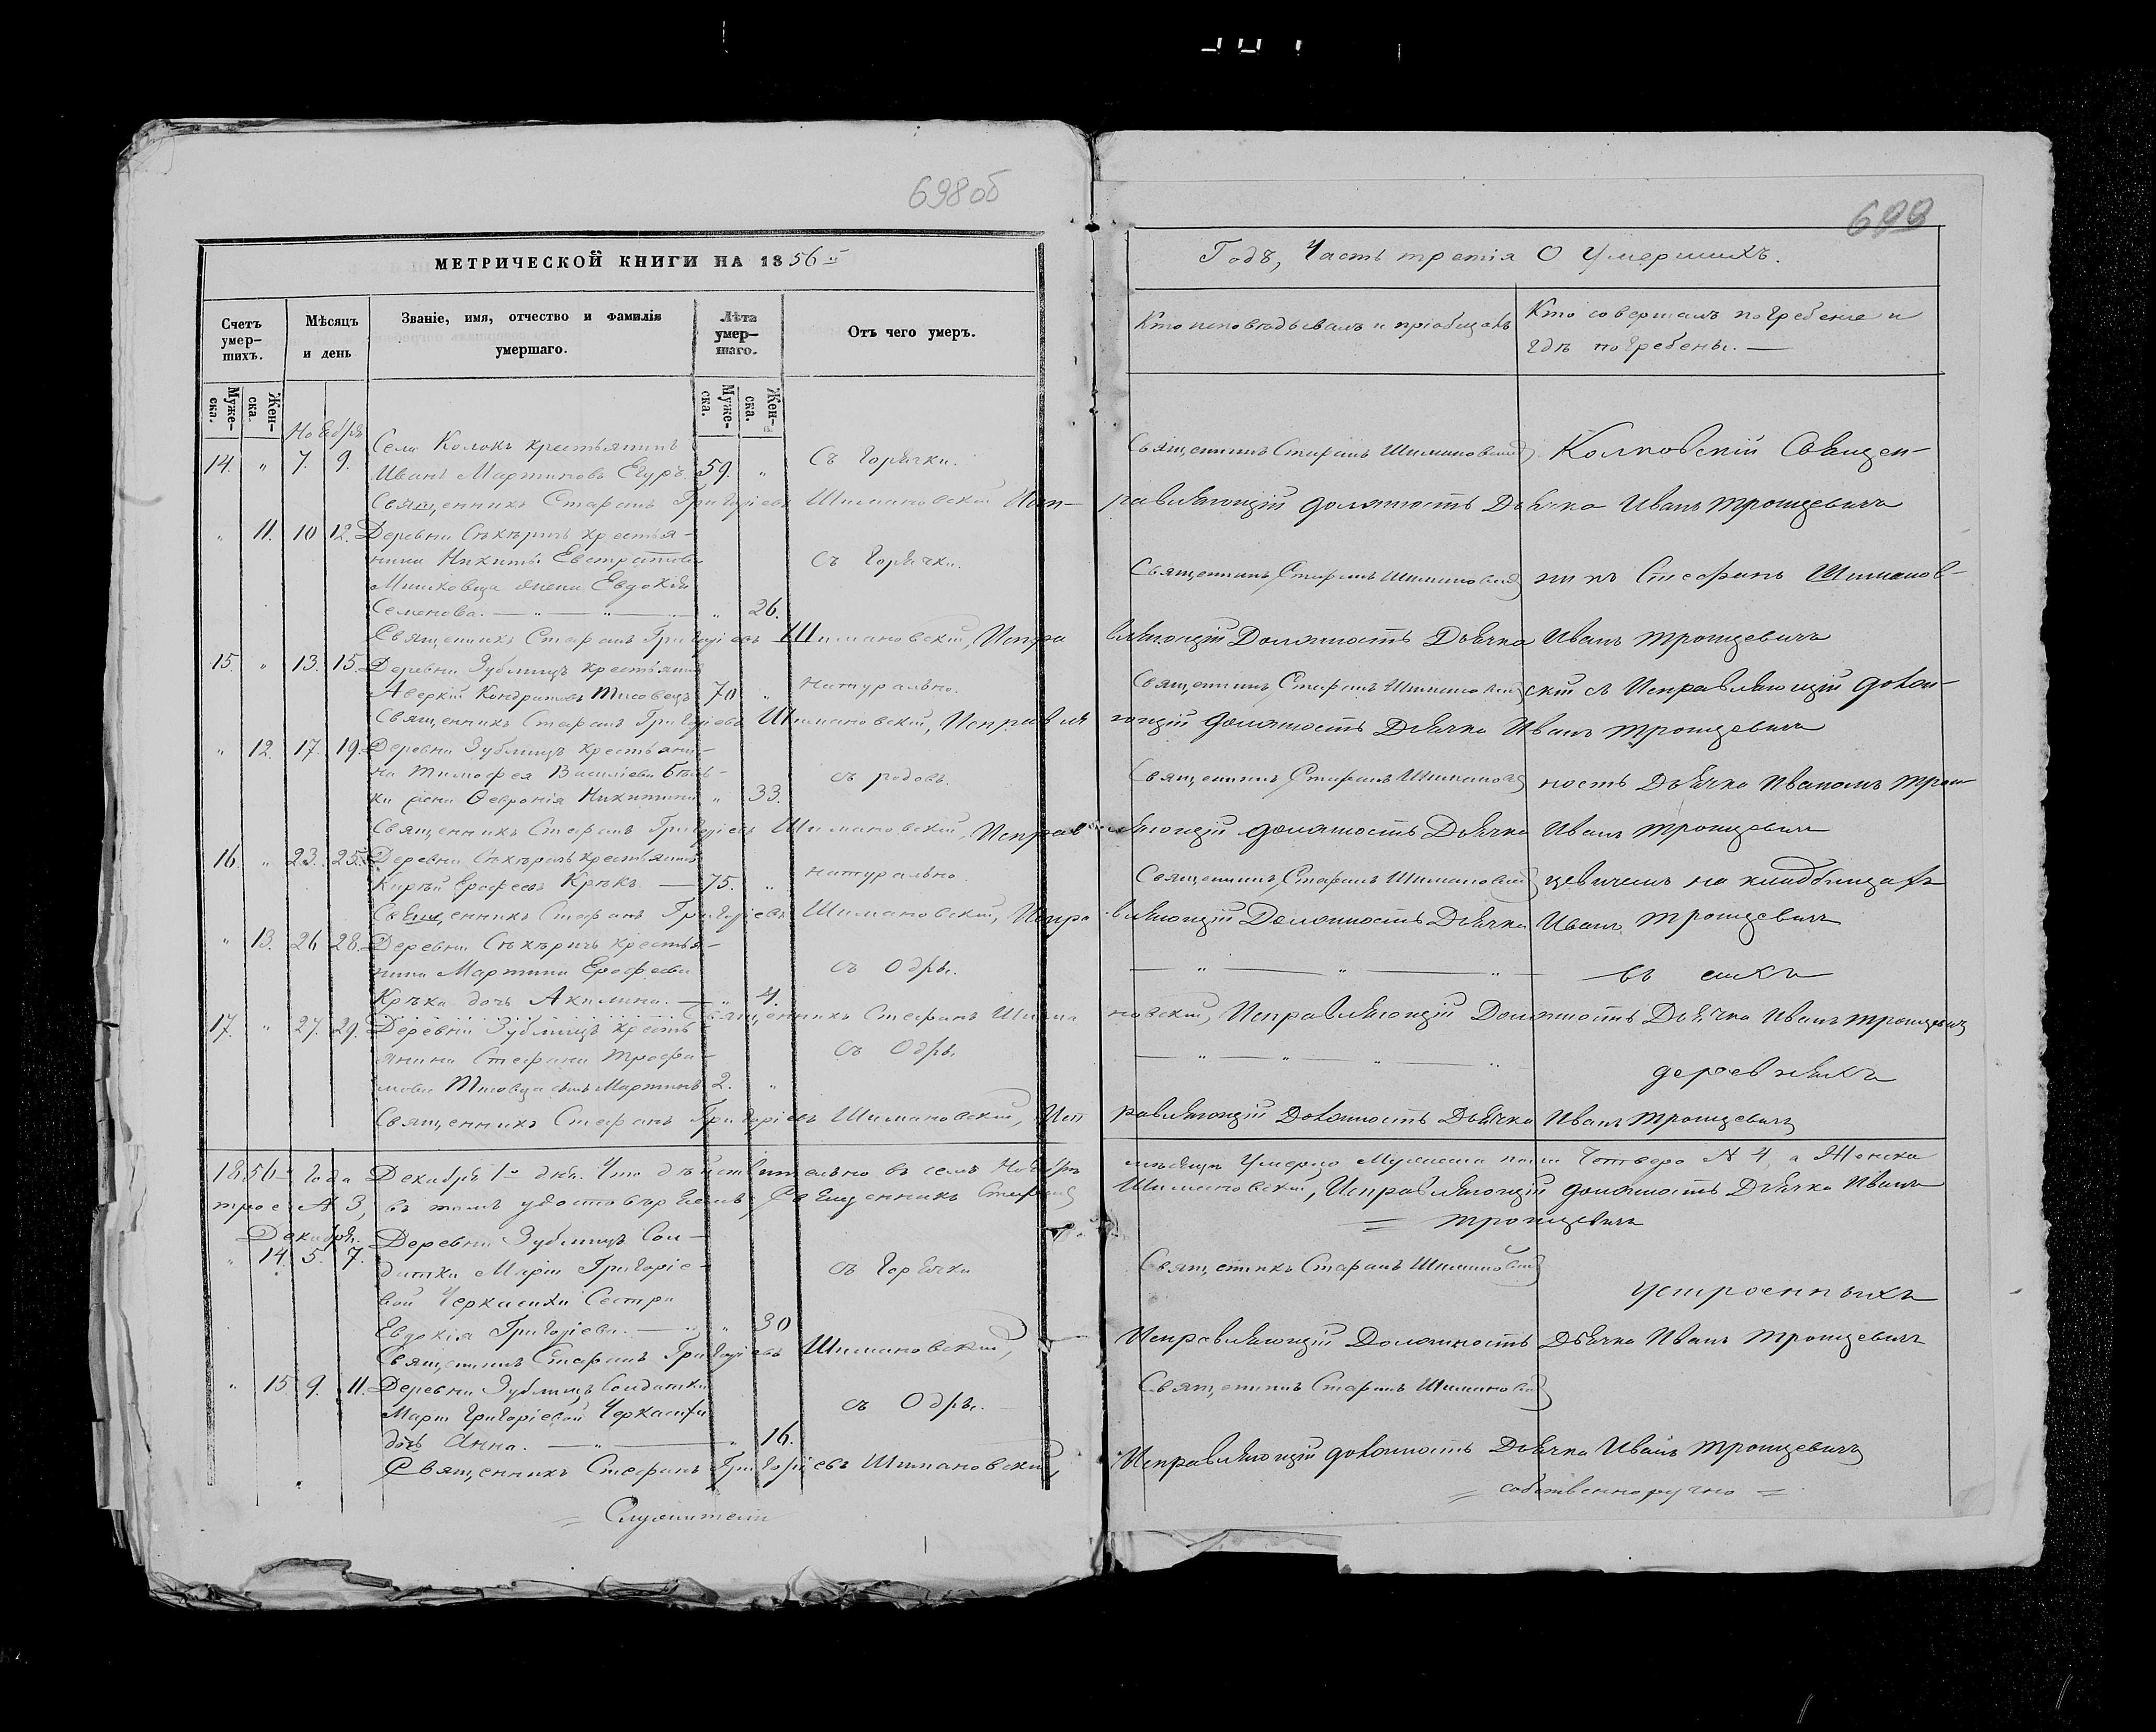 698 об
МЕТРИЧЕСКОЙ КНИГИ НА 1856
Счетъ умер-шихъ.
Мѣсяцъ и день
Званіе, имя, отчество и фамилія умершаго.
Лѣта умер-шаго.
Отъ чего умеръ.
Муже-ска.
Жен-ска
Муже-ска.
Жен-ска.
Ноября
Села Колокъ крестьянинъ
14. " 7. 9. Иванъ Мартиновъ 59. " Съ горячки.
Священникъ Стефанъ Григоріевъ Шимановскій Исп-
" 11. 10 12. Деревни крестья-
нина Никиты Евстратіева Съ горячки.
жена Евдокія
Семенова. " 26.
Священникъ Стефанъ Григоріевъ Шимановскій, Испра
15. " 13. 15. Деревни Зублищъ крестьянинъ
Аверкій Кондратовъ Тисовецъ 70 " натурально.
Священникъ Стефанъ Григоріевъ Шимановскій, Исправля
" 12. 17. 19. Деревни Зублищъ крестьяни-
на Тимофея Василіева съ родовъ.
жена Ѳевронія Никитина " 33.
Священникъ Стефанъ Григоріевъ Шимановскій, Исправ
16. " 23. 25. Деревни крестьянинъ
Ерофеевъ Крѣкъ. 75. " натурально
Священникъ Стефанъ Григоріевъ Шимановскій, Испра
" 13. 26 28. Деревни крестья-
нина Мартина Ерофеева съ Одры.
Крѣка дочь Акилина. " 4.
Священникъ Стефанъ Шима
17. " 27. 29. Деревни Зублищъ кресть-
янина Стефана Трофи- съ Одры
мова Тисовца сынъ Мартинъ 2. "
Священникъ Стефанъ Григоріевъ Шимановскій, Исп
1856 года Декабря 1 дня. Что дѣйствительно въ семъ Ноябрѣ
трое № 3, въ томъ удостовѣряемъ Священникъ Стефанъ
Декабря. Деревни Зублищъ Сол-
" 14. 5. 7. датки Маріи Григоріе- съ Горячки
вой Черкасихи Сестра
Евдокія Григоріева. " 30
Священникъ Стефанъ Григоріевъ Шимановскій,
" 15 9. 11. Деревни Зублищъ Солдатки
Маріи Григоріевой Черкасихи съ Одры.
дочь Анна. " 16.
Священникъ Стефанъ Григоріевъ Шимановскій,
Служители
Годъ, Часть третія О Умершихъ.
Кто исповѣдывалъ и пріобщалъ
Кто совершалъ погребеніе и гдѣ погребены.
Священникъ Стефанъ Шимановскій Колковскій Священ-
равляющій должность Дьячка Иванъ Трошцевичъ
Священникъ Стефанъ Шимановскій никъ Стефанъ Шиманов-
вляющій Должность Дьячка Иванъ Трошцевичъ
Священникъ Стефанъ Шимановскій скій съ Исправляющій должн-
ющій должность Дьячка Иванъ Трошцевичъ
Священникъ Стефанъ Шимановскій ность Дьячка Иваномъ Трош
ляющій должность Дьячка Иванъ Трошцевичъ
Священникъ Стефанъ Шимановскій цевичемъ на кладбищахъ
вляющій Должность Дьячка Иванъ Трошцевичъ
въ сихъ
новскій, Исправляющій Должность Дьячка Иванъ Трошцевичъ
деревняхъ
равляющій Должность Дьячка Иванъ Трошцевичъ
мѣсяцѣ Умерло Мужеска пола Четверо № 4 а Женска
Шимановскій, Исправляющій должность Дьячка Иванъ
Трошцевичъ
Священникъ Стефанъ Шимановскій
устроенныхъ
Исправляющій Должность Дьячка Иванъ Трошцевичъ
Священникъ Стефанъ Шимановскій
Исправляющій должность Дьячка Иванъ Трошцевичъ
собственноручно